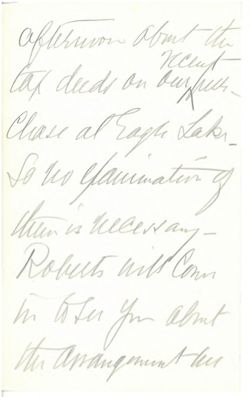 afternoon about the
recent
tax deeds on our pur-
chase at Eagle Lake -
So no examination of
them is necessary -
Roberts will come
in to see you about
the arrangement he